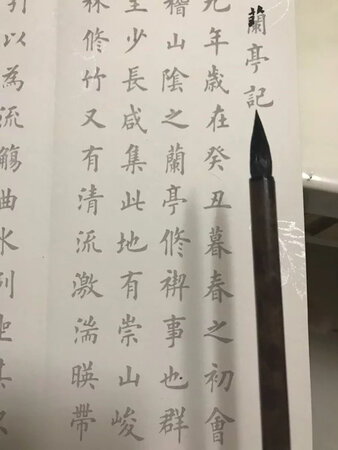 蘭亭記
九年歲在癸丑暮春之初會
稽山陰之蘭亭修禊事也群
至少長咸集此地有崇山峻
林修竹又有清流激湍暎帶
引以為流觴曲水列坐其次